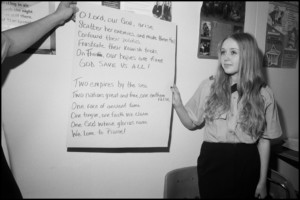 O Lord, our God, arise
Scatter her enemies and make them fall
Confound their
Frustrate their knavish tricks
On our hopes
God Save US ALL!
Two empires by the sea
Two nations great and free, one anthem raise
One race of ancient fame
One tongue, one faith we claim
One God whose glorious name
We love to Praise!